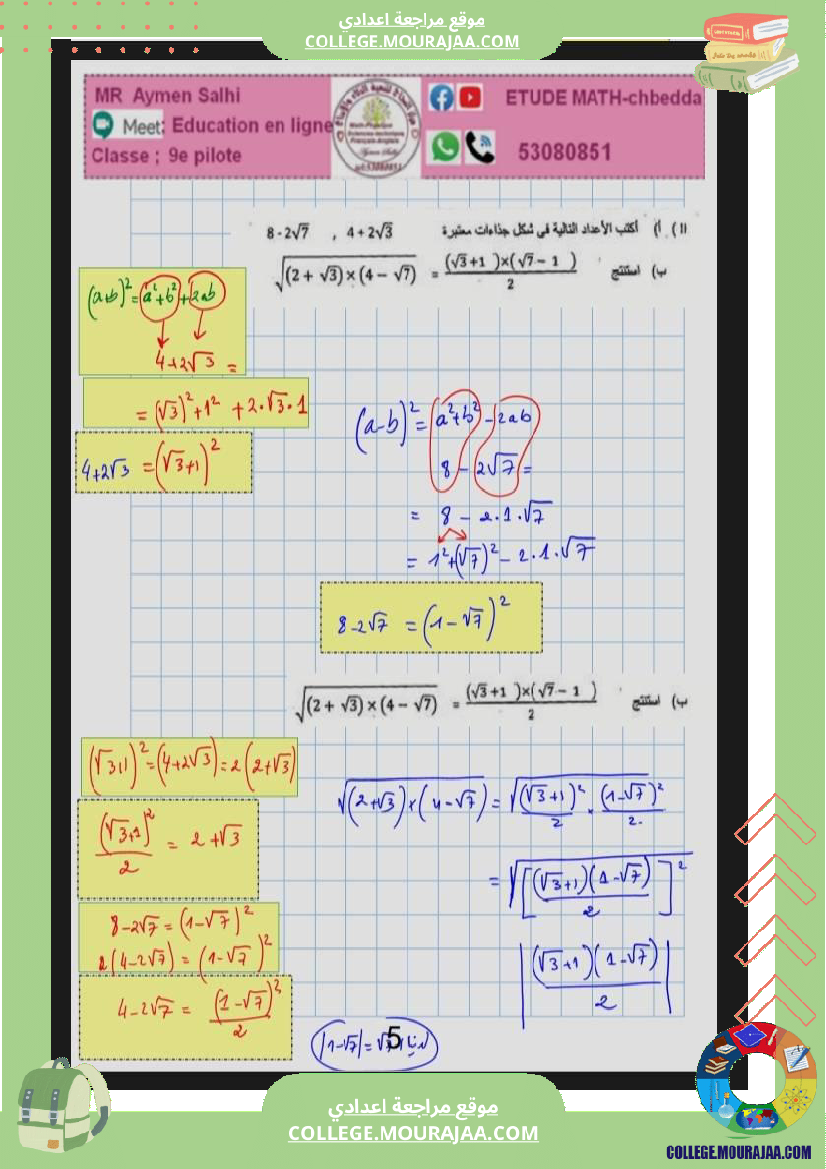 موقع مراجعة اعدادي
COLLEGE.MOURAJAA.COM
MR Aymen Salhi
Meet: Education en ligne
Classe ; 9e pilote
ETUDE MATH-chbedda
53080851
II) أ) أكتب الأعداد التالية في شكل جذاءات معتبرة 4+2√3 , 8-2√7
ب) استنتج √((2 + √3)×(4 − √7)) = ((√3+1 )×(√7− 1 ))/2
(a+b)² = a²+b²+2ab
4+2√3 =
= (√3)²+1² + 2·√3·1
4+2√3 = (√3+1)²
(a-b)² = a²+b² - 2ab
8 - 2√7 =
= 8 - 2·1·√7
= 1²+(√7)² - 2·1·√7
8-2√7 = (1-√7)²
ب) استنتج √((2 + √3)×(4 − √7)) = ((√3+1 )×(√7− 1 ))/2
(√3+1)² = (4+2√3) = 2(2+√3)
(√3+1)²/2 = 2+√3
8-2√7 = (1-√7)²
2(4-2√7) = (1-√7)²
4-2√7 = (1-√7)²/2
√((2+√3)×(4-√7)) = √((√3+1)²/2 × (1-√7)²/2)
= √([(√3+1)(1-√7)/2]²)
|(√3+1)(1-√7)/2|
|1-√7| =
5
موقع مراجعة اعدادي
COLLEGE.MOURAJAA.COM
COLLEGE.MOURAJAA.COM